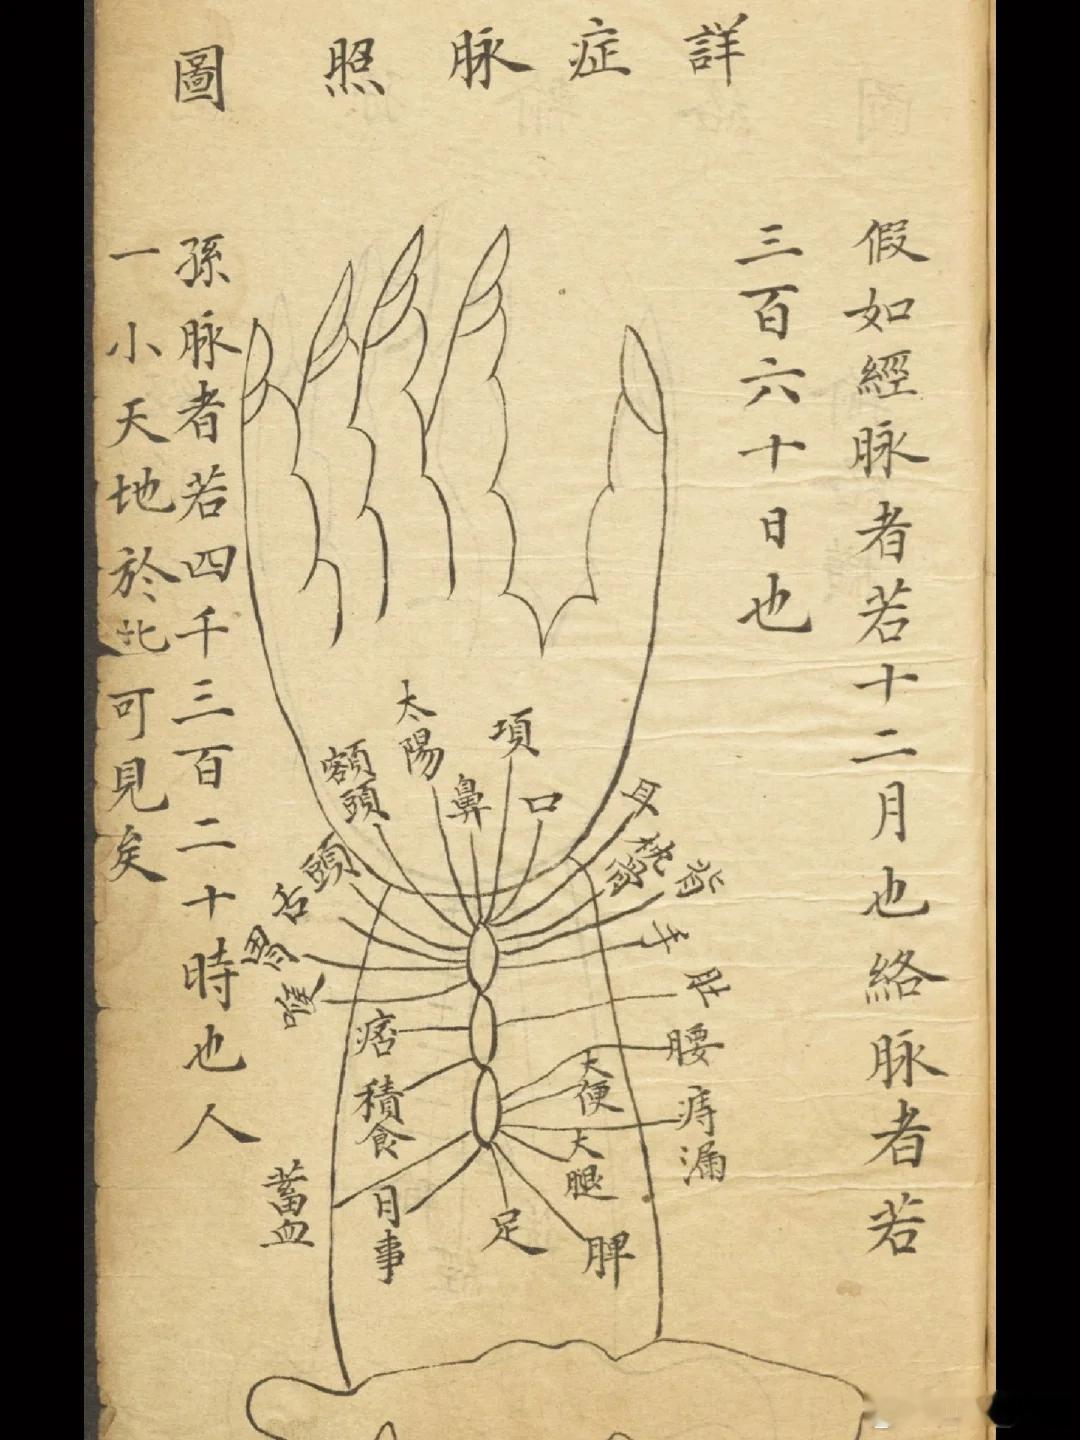 詳症脉照圖
假如經脉者若十二月也絡脉者若
三百六十日也
孫脉者若四千三百二十時也人
一小天地於此可見矣
項
太陽
額頭
鼻
口
耳
枕骨
背
手
肚
腰
大便
痔漏
大腿
脾
足
月事
蓄血
積食
痞
喉
胃
舌
頭